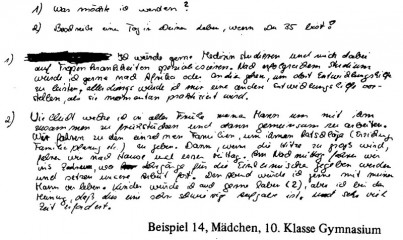 1) Was möchte ich werden?
2) Beschreibe einen Tag in Deinem Leben, wenn Du 35 bist?
1) Ich würde gerne Medizin studieren und mich dabei
auf Tropenkrankheiten spezialisieren. Nach erfolgreichem Studium
würde ich gerne nach Afrika oder gehen, um dort Entwicklungshilfe
zu leisten, allerdings würde ich mir eine andere Entwicklungshilfe vor-
stellen, als sie momentan praktiziert wird.
2) Vielleicht ich in Afrika meinen Mann um mit ihm
zusammen zu und dann gemeinsam zu arbeiten.
Wir fahren zu den einzelnen Familien, um ihnen Ratschläge
zu geben. Dann, wenn die Hitze zu groß wird,
fahren wir nach Hause und Am Nachmittag fahren wir
ins wo für die Einheimischen gegeben werden
und setzen unsere Arbeit fort. Den Abend würde ich gerne mit meinem
Mann verleben. Kinder würde ich auch gerne haben (2), aber ich bin der
Meinung, daß dies eine sehr schwierige Aufgabe ist und sehr viel
Zeit erfordert.
Beispiel 14, Mädchen, 10. Klasse Gymnasium